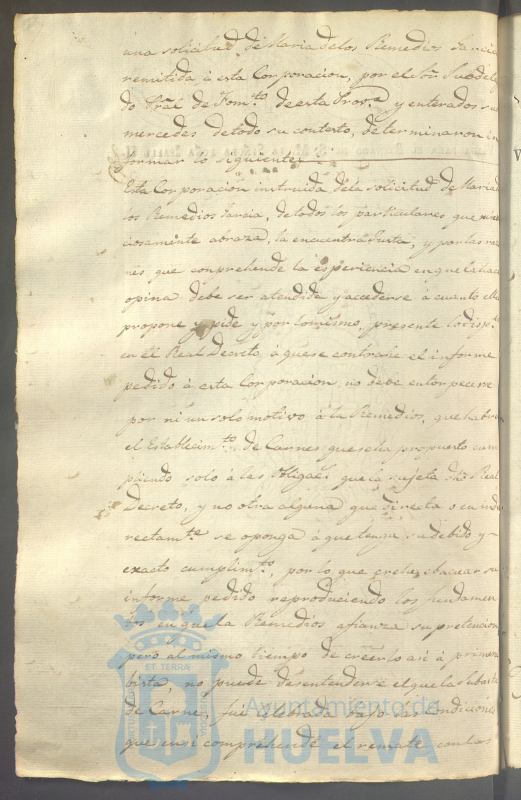 una solicitud de Maria de los Remedios Garcia
remitida á esta Corporacion, por el Sor. Subdeleg
do Pral de Fomto. de esta Prova. y enterados sus
mercedes de todo su contexto, determinaron in
formar lo siguiente
Esta Corporacion instruida de la solicitud de Maria de
los Remedios Garcia, de todos los particulares que
ciosamente abraza, la encuentra Justa, y por las razo
nes que comprehende la esperiencia en que la hace
opina debe ser atendida y accederse á cuanto ella
propone y pide y por lo mismo, presente lo dispto.
en el Real Decreto, á que se contrahe el informe
pedido á esta Corporacion, no debe entorpecerse
por ni un solo motivo á la Remedios, que habra
el Establecimto. de Carnes que se ha propuesto cum
pliendo solo á las obligacs. que la sujeta dho Real
Decreto, y no otra alguna que directa o indi
rectamte. se oponga á que tenga su debido y
exacto cumplimto., por lo que crehe evacuar su
informe pedido reproduciendo los fundamen
tos en que la Remedios afianza su pretencion
pero al mismo tiempo de creerlo asi á primera
bista, no puede desentenderse el que la subasta
de Carne, fue celebrada bajo las condiciones
que en si comprehende el remate con las
ET TERRÆ
Ayuntamiento de
HUELVA